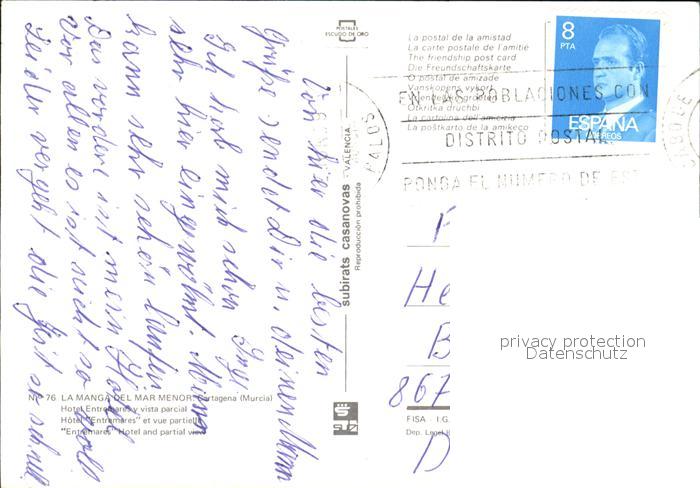 POSTALES
ESCUDO DE ORO
La postal de la amistad
La carte postale de l'amitié
The friendship post card
Die Freundschaftskarte
O postal de amizade
Vanskopens vykort
Otkritka druchbi
La cartolina dell'amicizia
La postkarto de la amikeco
8
PTA
ESPAÑA
CORREOS
EN LAS POBLACIONES CON
DISTRITO POSTAL
PONGA EL NUMERO DE EST
subirats casanovas - VALENCIA
Reproducción prohibida
Von hier die besten
Grüße sendet Dir u. deinem Mann
Inge
Ich hab mich schon
sehr hier eingewöhnt. Mann
kann sehr schön laufen
Das vordere ist mein Hotel
vor allem es ist nicht so voll
Leider vergeht die Zeit so schnell.
Nº 76 LA MANGA DEL MAR MENOR. Cartagena (Murcia)
Hotel Entremares y vista parcial
Hôtel "Entremares" et vue partielle
"Entremares" Hotel and partial view
F
He
B
867
D
FISA - I.G.
Dep. Legal B
privacy protection
Datenschutz